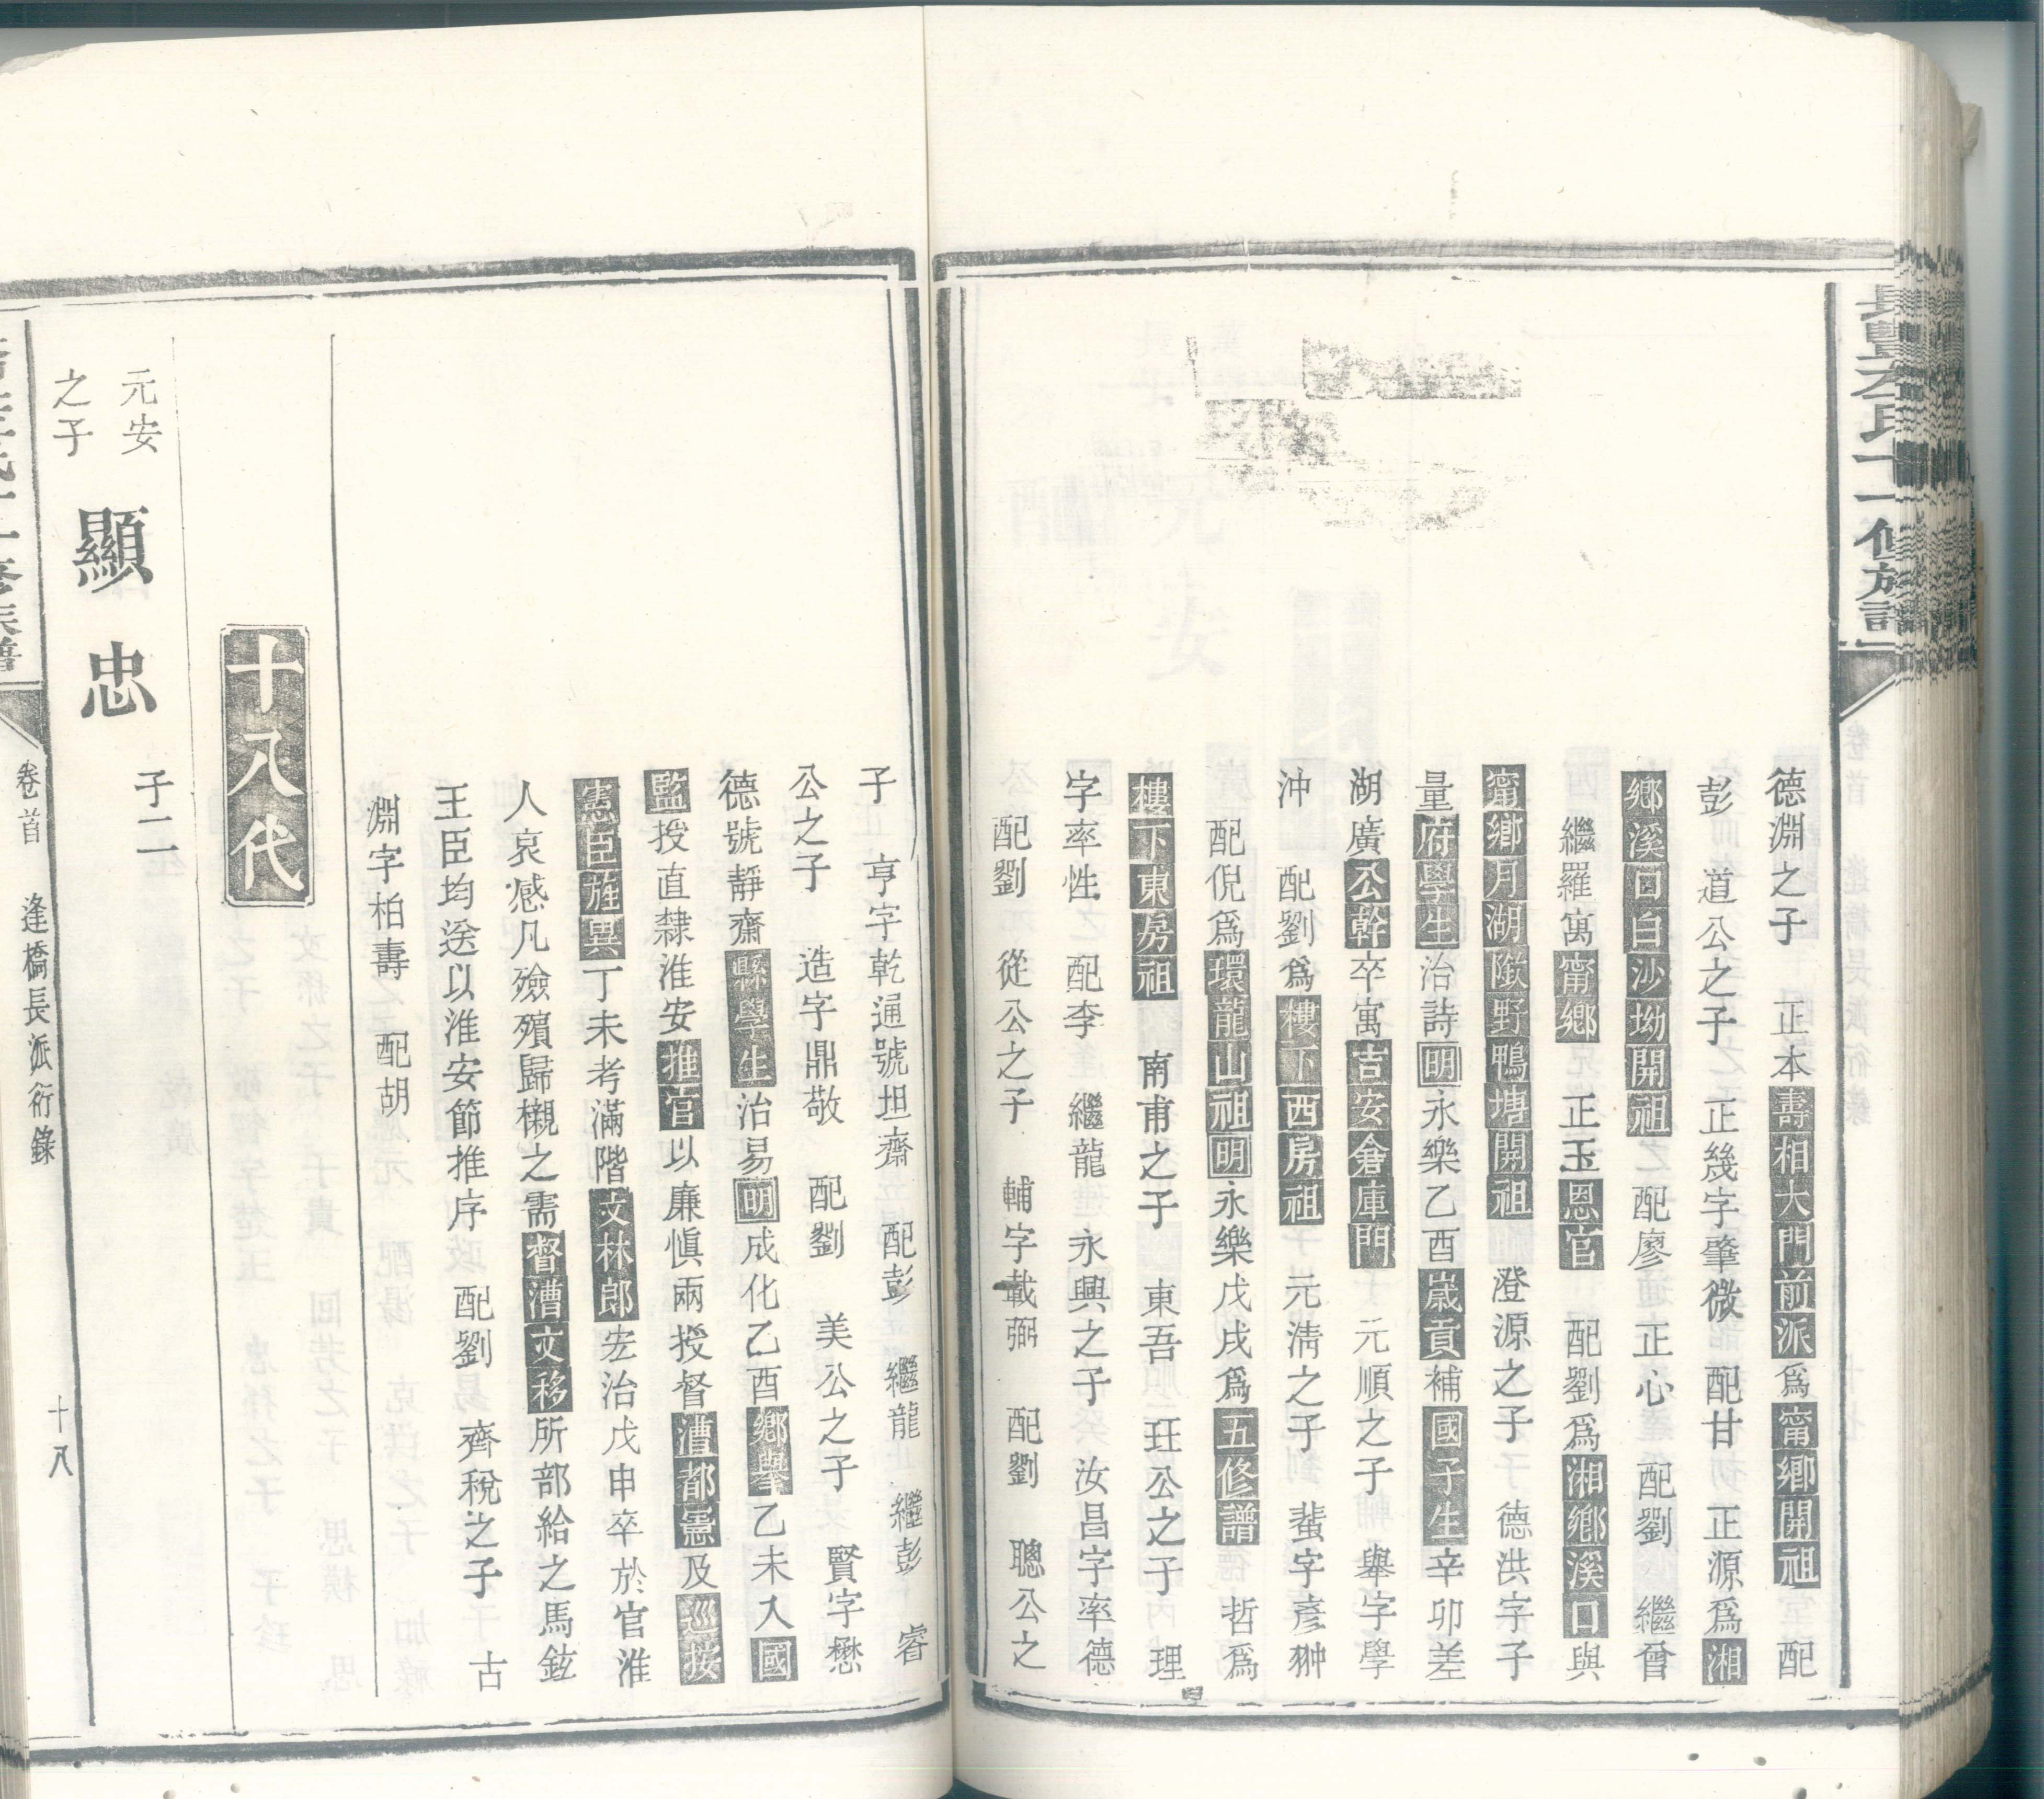 德淵之子　正本壽相大門前派爲甯鄉開祖　配
彭　道公之子　正幾字肇微　配甘　正源爲湘
鄉溪口白沙坳開祖　配廖　正心　配劉　繼曾
繼羅寓甯鄉　正玉恩官　配劉爲湘鄉溪口與
甯鄉月湖陂野鴨塘開祖　澄源之子　德洪字子
量府學生治詩明永樂乙酉歲貢補國子生辛卯差
湖廣公幹卒寓吉安倉庫門　元順之子　舉字學
沖　配劉爲樓下西房祖　元淸之子　蜚字彥翀
配倪爲環龍山祖明永樂戊戌爲五修譜　哲爲
樓下東房祖　南甫之子　東吾　玨公之子　理
字率性　配李　繼龍　永興之子　汝昌字率德
配劉　從公之子　輔字載弼　配劉　聰公之
子　亨字乾通號坦齋　配彭　繼龍　繼彭　睿
公之子　造字鼎敬　配劉　美公之子　賢字懋
德號靜齋縣學生治易明成化乙酉鄉舉乙未入國
監授直隸淮安推官以廉愼兩授督漕都憲及巡按
憲臣旌異丁未考滿階文林郎宏治戊申卒於官淮
人哀感凡殮殯歸櫬之需督漕文移所部給之馬鉉
王臣均送以淮安節推序　配劉　齊稅之子　古
淵字柏壽　配胡
十八代
元安
之子
顯忠
子二
卷首　逢橋長派衍錄　十八